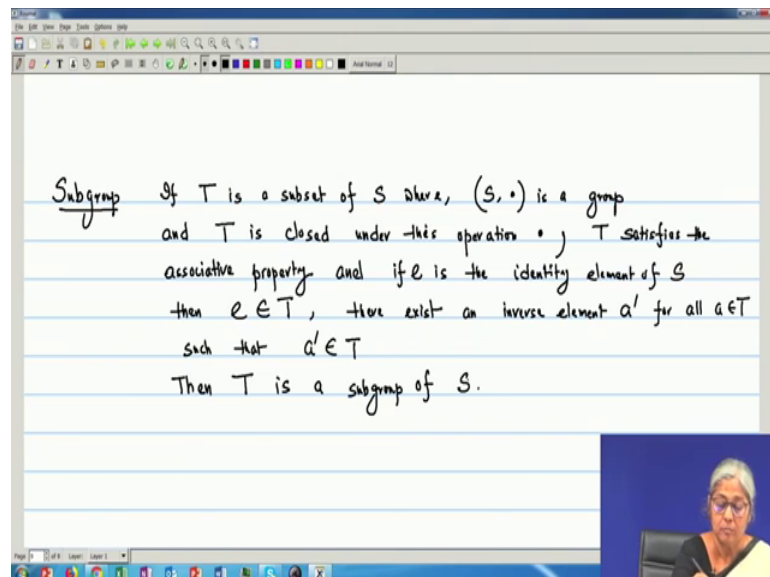 File Edit View Page Tools Options Help
Arial Normal 12
Subgroup If T is a subset of S where, (S, •) is a group
and T is closed under this operation •, T satisfies the
associative property and if e is the identity element of S
then e ∈ T, there exist an inverse element a' for all a ∈ T
such that a' ∈ T
Then T is a subgroup of S.
Page 9 of 9 Layer: Layer 1